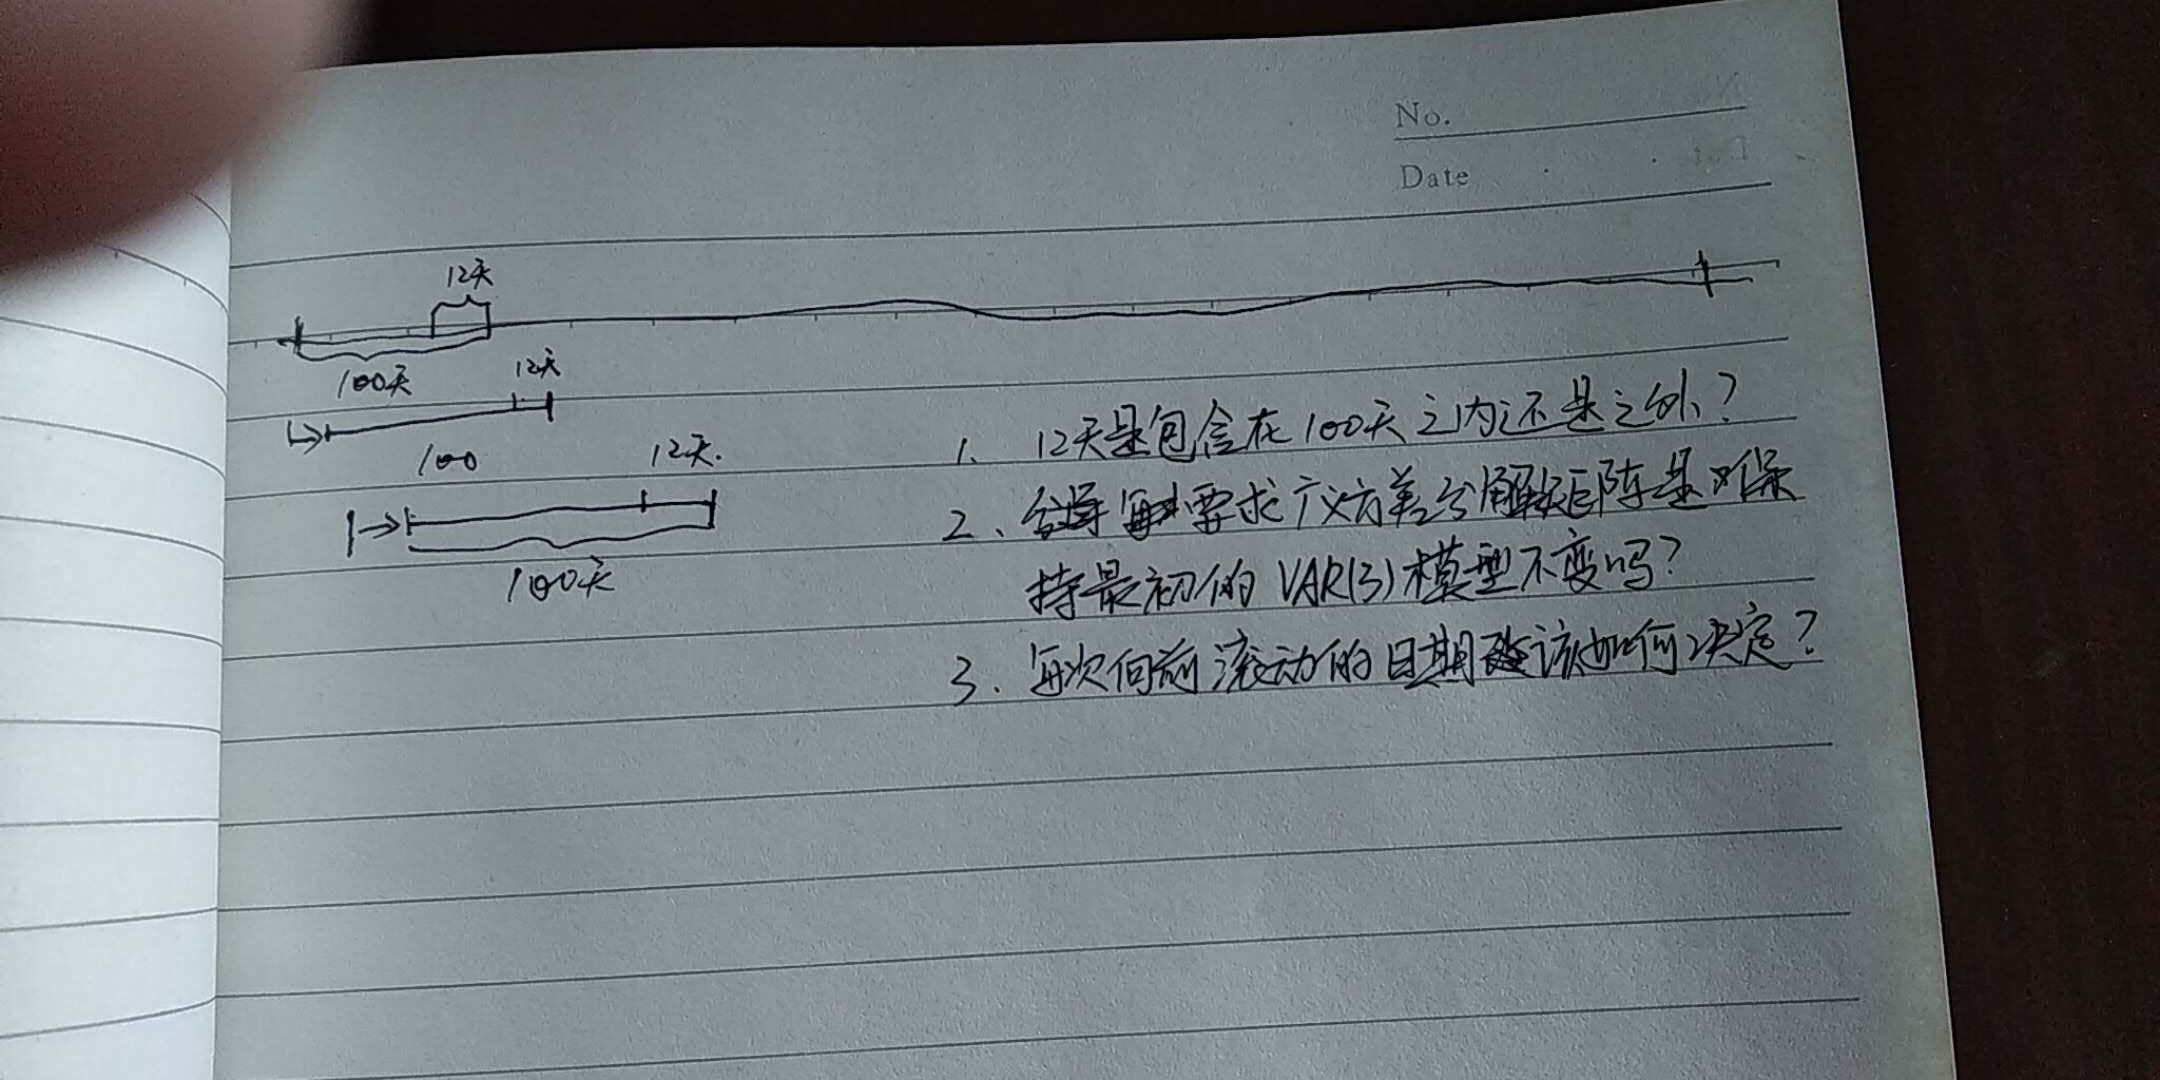 No.
Date
12天
100天
12天
100
12天.
100天
1. 12天是包含在100天之内还是之外?
2、每 要求广义方差分解矩阵是 保
持最初的 VAR(3)模型不变吗?
3. 每次向前滚动的日期 该如何决定?